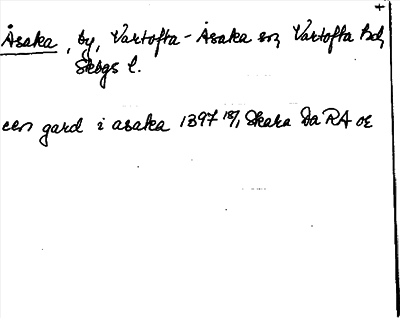 +
Åsaka, by, Vartofta-Åsaka sn, Vartofta hd,
Skbgs l.
een gard i asaka 1397 18/1 Skara Da RA oε